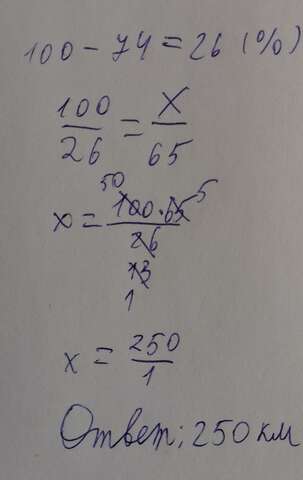 100 - 74 = 26 (%)
100/26 = X/65
50 5
x = 100 · 65 / 26
13
1
x = 250/1
Ответ: 250 км